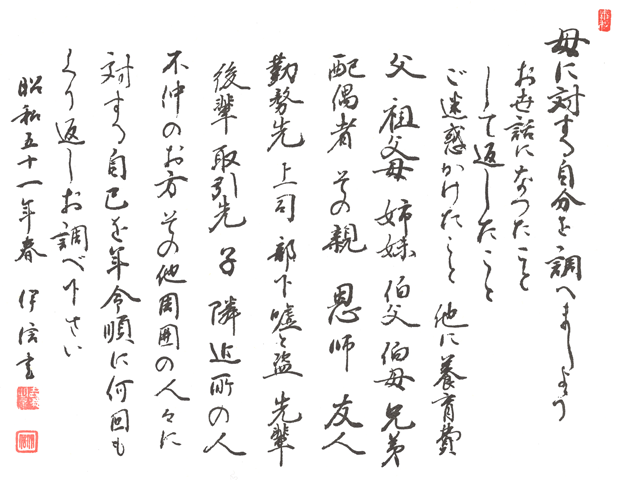 母に対する自分を調べましよう
お世話になつたこと
して返したこと
ご迷惑かけたこと 他に養育費
父 祖父母 姉妹 伯父 伯母 兄弟
配偶者 その親 恩師 友人
勤勢先 上司 部下 嘘と盗 先輩
後輩 取引先 子 隣近所の人
不仲のお方 その他周囲の人々に
対する自己を年令順に何回も
くり返しお調べ下さい
昭和五十一年春 伊信書